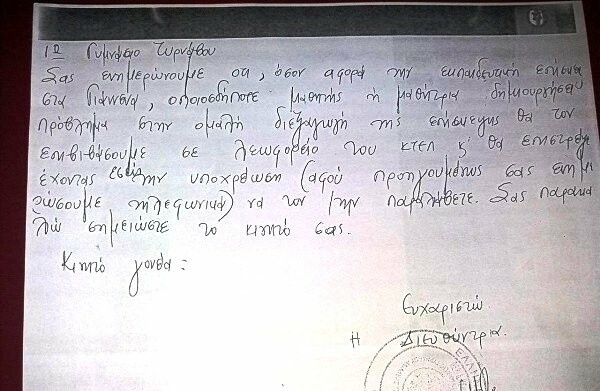 1ο Γυμνάσιο Τυρνάβου
Σας ενημερώνουμε οτι, όσον αφορά την εκπαιδευτική επίσκεψη
στα Γιάννενα, οποιοσδήποτε μαθητής ή μαθήτρια δημιουργήσει
πρόβλημα στην ομαλή διεξαγωγή της επίσκεψης θα τον
επιβιβάσουμε σε λεωφορείο του κτελ κ' θα επιστρέψει
έχοντας εσείς την υποχρέωση (αφού προηγουμένως σας ενημε
ρώσουμε τηλεφωνικά) να τον παραλάβετε. Σας παρακα
λώ σημειώστε το κινητό σας.
Κινητό γονέα:
Ευχαριστώ
Η Διευθύντρια.